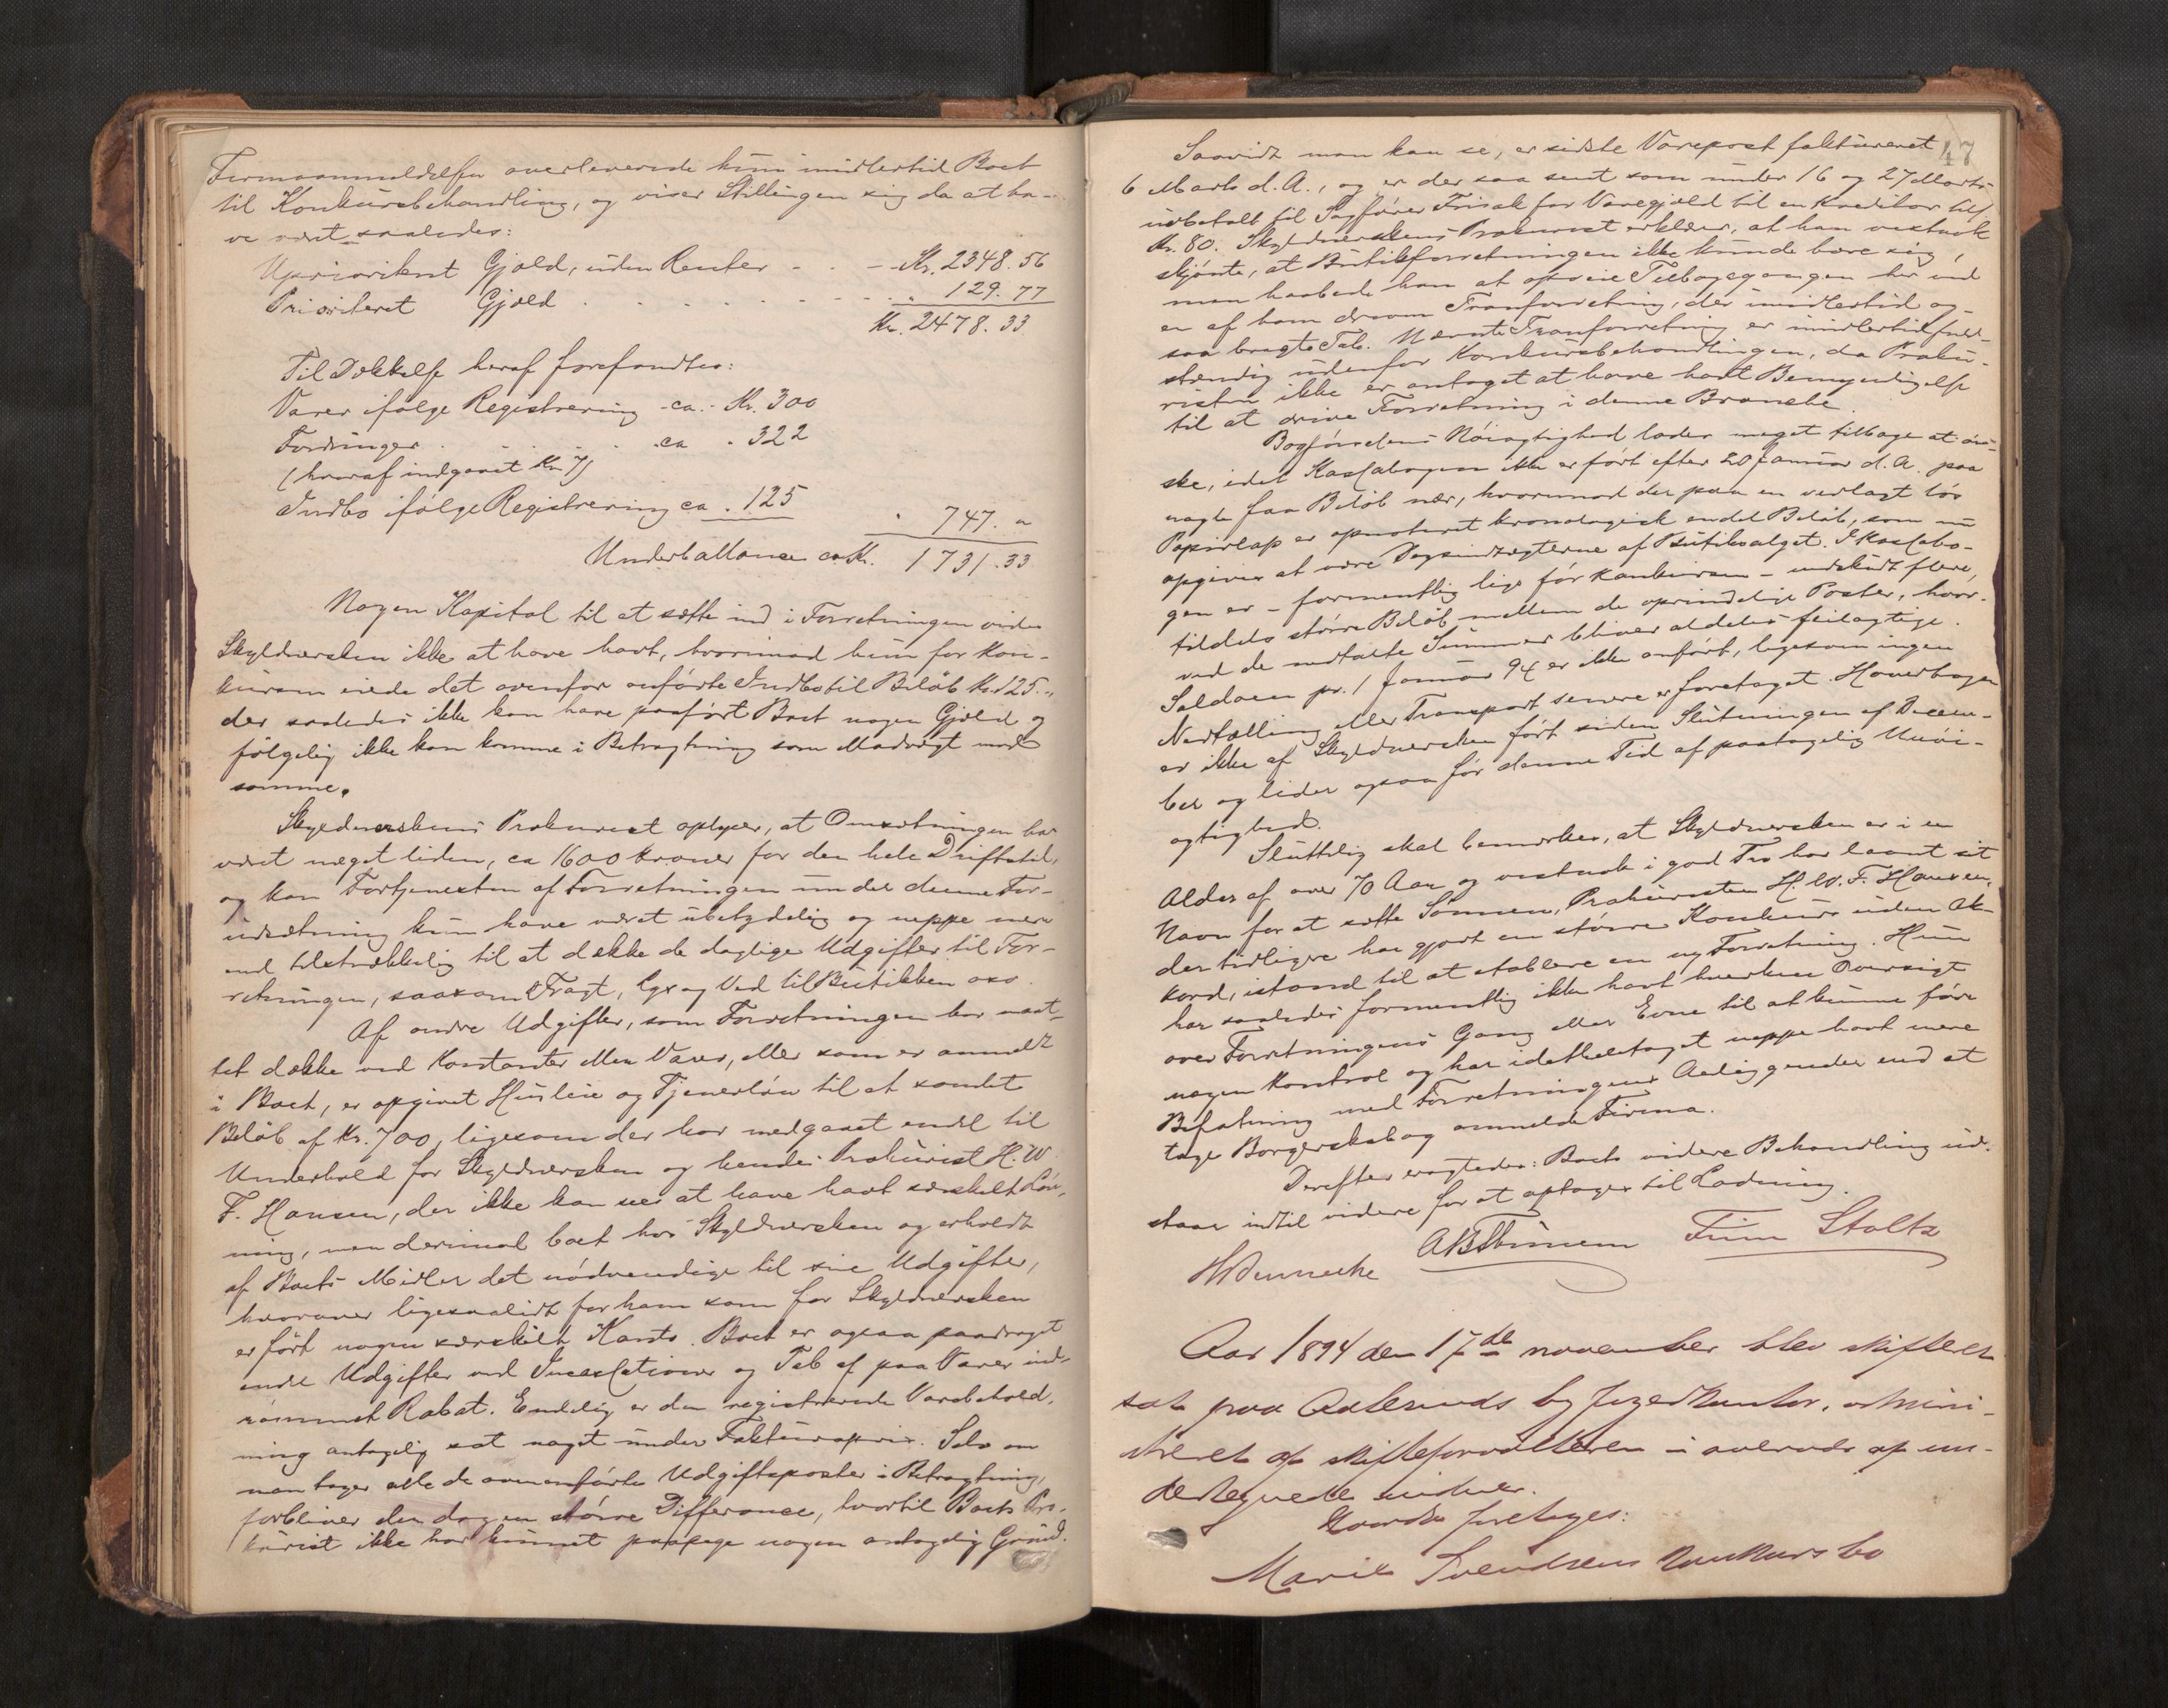 Firmaanmeldelsen overleverede hun imidlertid Boet
til Konkursbehandling, og viser Stillingen sig da at ha-
ve været saaledes:
Uprioritert Gjæld, uden Renter - . - - Kr. 2348.56
Prioriteret Gjæld . . . . . . . . . 129.77
Kr. 2478.33
Til Dækkelse heraf forefandtes:
Varer ifølge Registrering ca. - Kr. 300
Fordringer . . . . . ca . 322
(hvoraf indgaaet Kr. 7)
Indbo ifølge Registrering ca . 125
" 747. "
Underballance ca Kr. 1731.33
Nogen Kapital til at sætte ind i Forretningen vides
Skyldnersken ikke at have havt, hvorimod hun før Kon-
kursen eiede det ovenfor anførte Indbo til Beløb Kr. 125.",
der saaledes ikke kan have paaført Boet nogen Gjæld og
følgelig ikke kan komme i Betragtning som Modvægt mod
samme.
Skyldnerskens Prokurist oplyser, at Omsætningen har
været meget liden, ca 1600 Kroner for den hele Driftstid,
og kan Fortjenesten af Forretningen under denne For-
udsætning kun have været ubetydelig og neppe mere
end tilstrækkelig til at dække de daglige Udgifter til For-
retningen, saasom Fragt, Lys og Ved til Butikken osv.
Af andre Udgifter, som Forretningen har maat-
tet dække ved Kontanter eller Varer, eller som er anmeldt
i Boet, er opgivet Husleie og Tjenerløn til et samlet
Beløb af Kr. 700, ligesom der har medgaaet endel til
Underhold for Skyldnersken og hendes Prokurist H. W.
F. Hansen, der ikke kan sees at have havt særskilt Løn-
ning, men derimod boet hos Skyldnersken og erholdt
af Boets Midler det nødvendige til sine Udgifter,
hvorover ligesaalidt for ham som for Skyldnersken
er ført nogen særskilt Konto. Boet er ogsaa paadraget
endel Udgifter ved Incassationer og Tab af paa Varer ind-
rømmet Rabat. Endelig er den registrerede Varebehold-
ning antagelig sat noget under Fakturapris. Selv om
man tager alle de ovenanførte Udgiftsposter i Betragtning,
forbliver der dog en større Difference, hvortil Boets Pro-
kurist ikke har kunnet paapege nogen antagelig Grund.
47
Saavidt man kan se, er sidste Varepost faktureret
6 Marts d. A., og er der saa sent som under 16 og 27 Marts
udbetalt til Sagfører Frisak for Varegjæld til en Kreditor tils.
Kr. 80. Skyldnerskens Prokurist erklærer, at han vistnok
skjønte, at Butikforretningen ikke kunde bære sig,
men haabede han at opveie Tilbagegangen her ved
en af ham dreven Tranforretning, der imidlertid og-
saa bragte Tab. Nævnte Tranforretning er imidlertid fuld-
stændig udenfor Konkursbehandlingen, da Proku-
risten ikke er antaget at have havt Bemyndigelse
til at drive Forretning i denne Branche.
Bogførselens Nøiagtighed lader meget tilbage at øn-
ske, idet Kassabogen ikke er ført efter 20 Januar d. A. paa
nogle faa Beløb nær, hvorimod der paa en vedlagt løs
Papirlap er opnoteret kronologisk endel Beløb, som nu
opgives at være Dagsindtægterne af Butiksalget. I Kassabo-
gen er - formentlig lige før Konkursen - indskudt flere,
tildels større Beløb mellem de oprindelige Poster, hvor-
ved de nedtalte Summer bliver aldeles feilagtige.
Saldoen pr. 1 Januar 94 er ikke anført, ligesom ingen
Nedtælling eller Transport senere er foretaget. Hovedbogen
er ikke af Skyldnersken ført siden Slutningen af Decem-
ber og lider ogsaa før denne Tid af paatagelig Unøi-
agtighed.
Sluttelig skal bemærkes, at Skyldnersken er i en
Alder af over 70 Aar og vistnok i god Tro har laant sit
Navn for at sætte Sønnen, Prokuristen H. W. F. Hansen,
der tidligere har gjort en større Konkurs uden Ak-
kord, istand til at etablere en ny Forretning. Hun
har saaledes formentlig ikke havt hverken Oversigt
over Forretningens Gang eller Evne til at kunne føre
nogen Kontrol og har idetheletaget neppe havt mere
Befatning med Forretningens Anliggender end at
tage Borgerskab og anmelde Firma.
Derefter eragtedes: Boets videre Behandling ud-
staar indtil videre for at optages til Lodning.
Finn Stoltz
Aar 1894 den 17de november blev skifteret
sat paa Aalesunds byfogedkontor, admini-
streret af skifteforvalteren i overvær af un-
dertegnede vidner.
Hvorda foretoges:
Marie Svendsens konkursbo